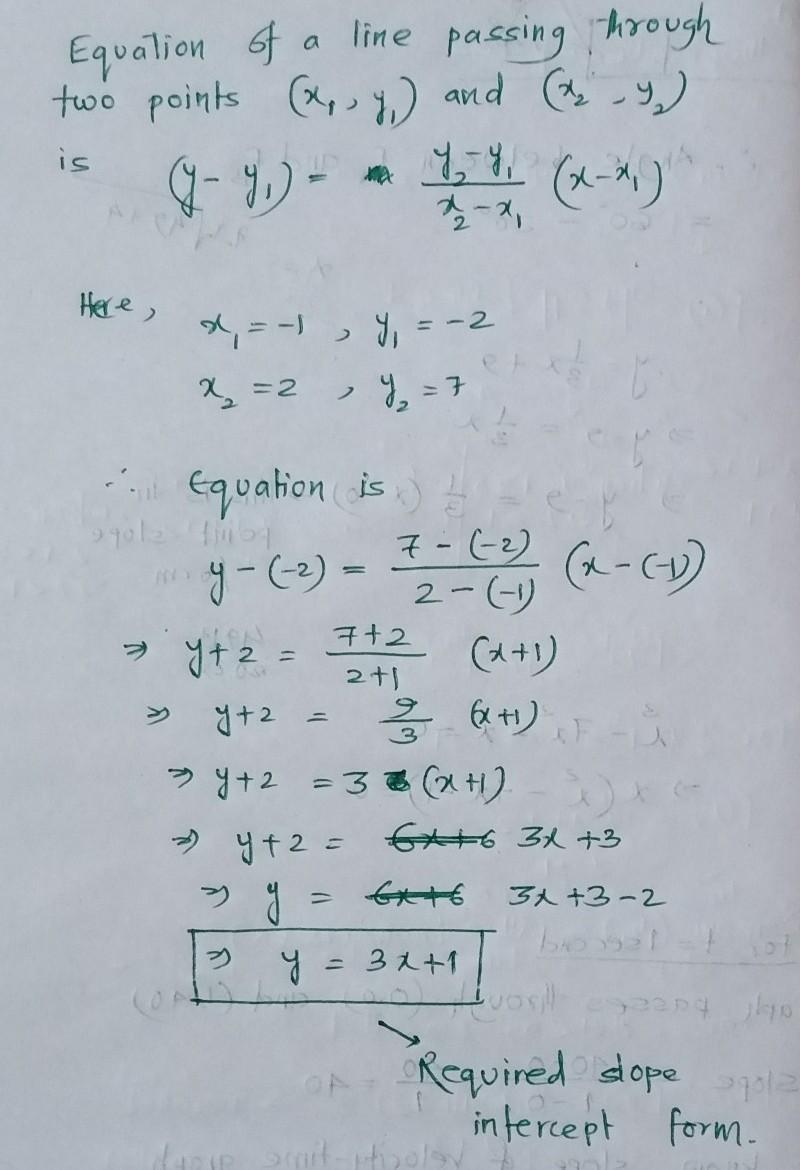 Equation of a line passing through
two points (x₁, y₁) and (x₂, y₂)
is (y - y₁) = y₂-y₁/x₂-x₁ (x-x₁)
Here, x₁ = -1 , y₁ = -2
x₂ = 2 , y₂ = 7
∴ Equation is
y - (-2) = 7 - (-2)/2 - (-1) (x - (-1))
⇒ y+2 = 7+2/2+1 (x+1)
⇒ y+2 = 9/3 (x+1)
⇒ y+2 = 3 (x+1)
⇒ y+2 = 6x+6 3x +3
⇒ y = 6x+6 3x +3-2
⇒ y = 3x+1
Required slope
intercept form.